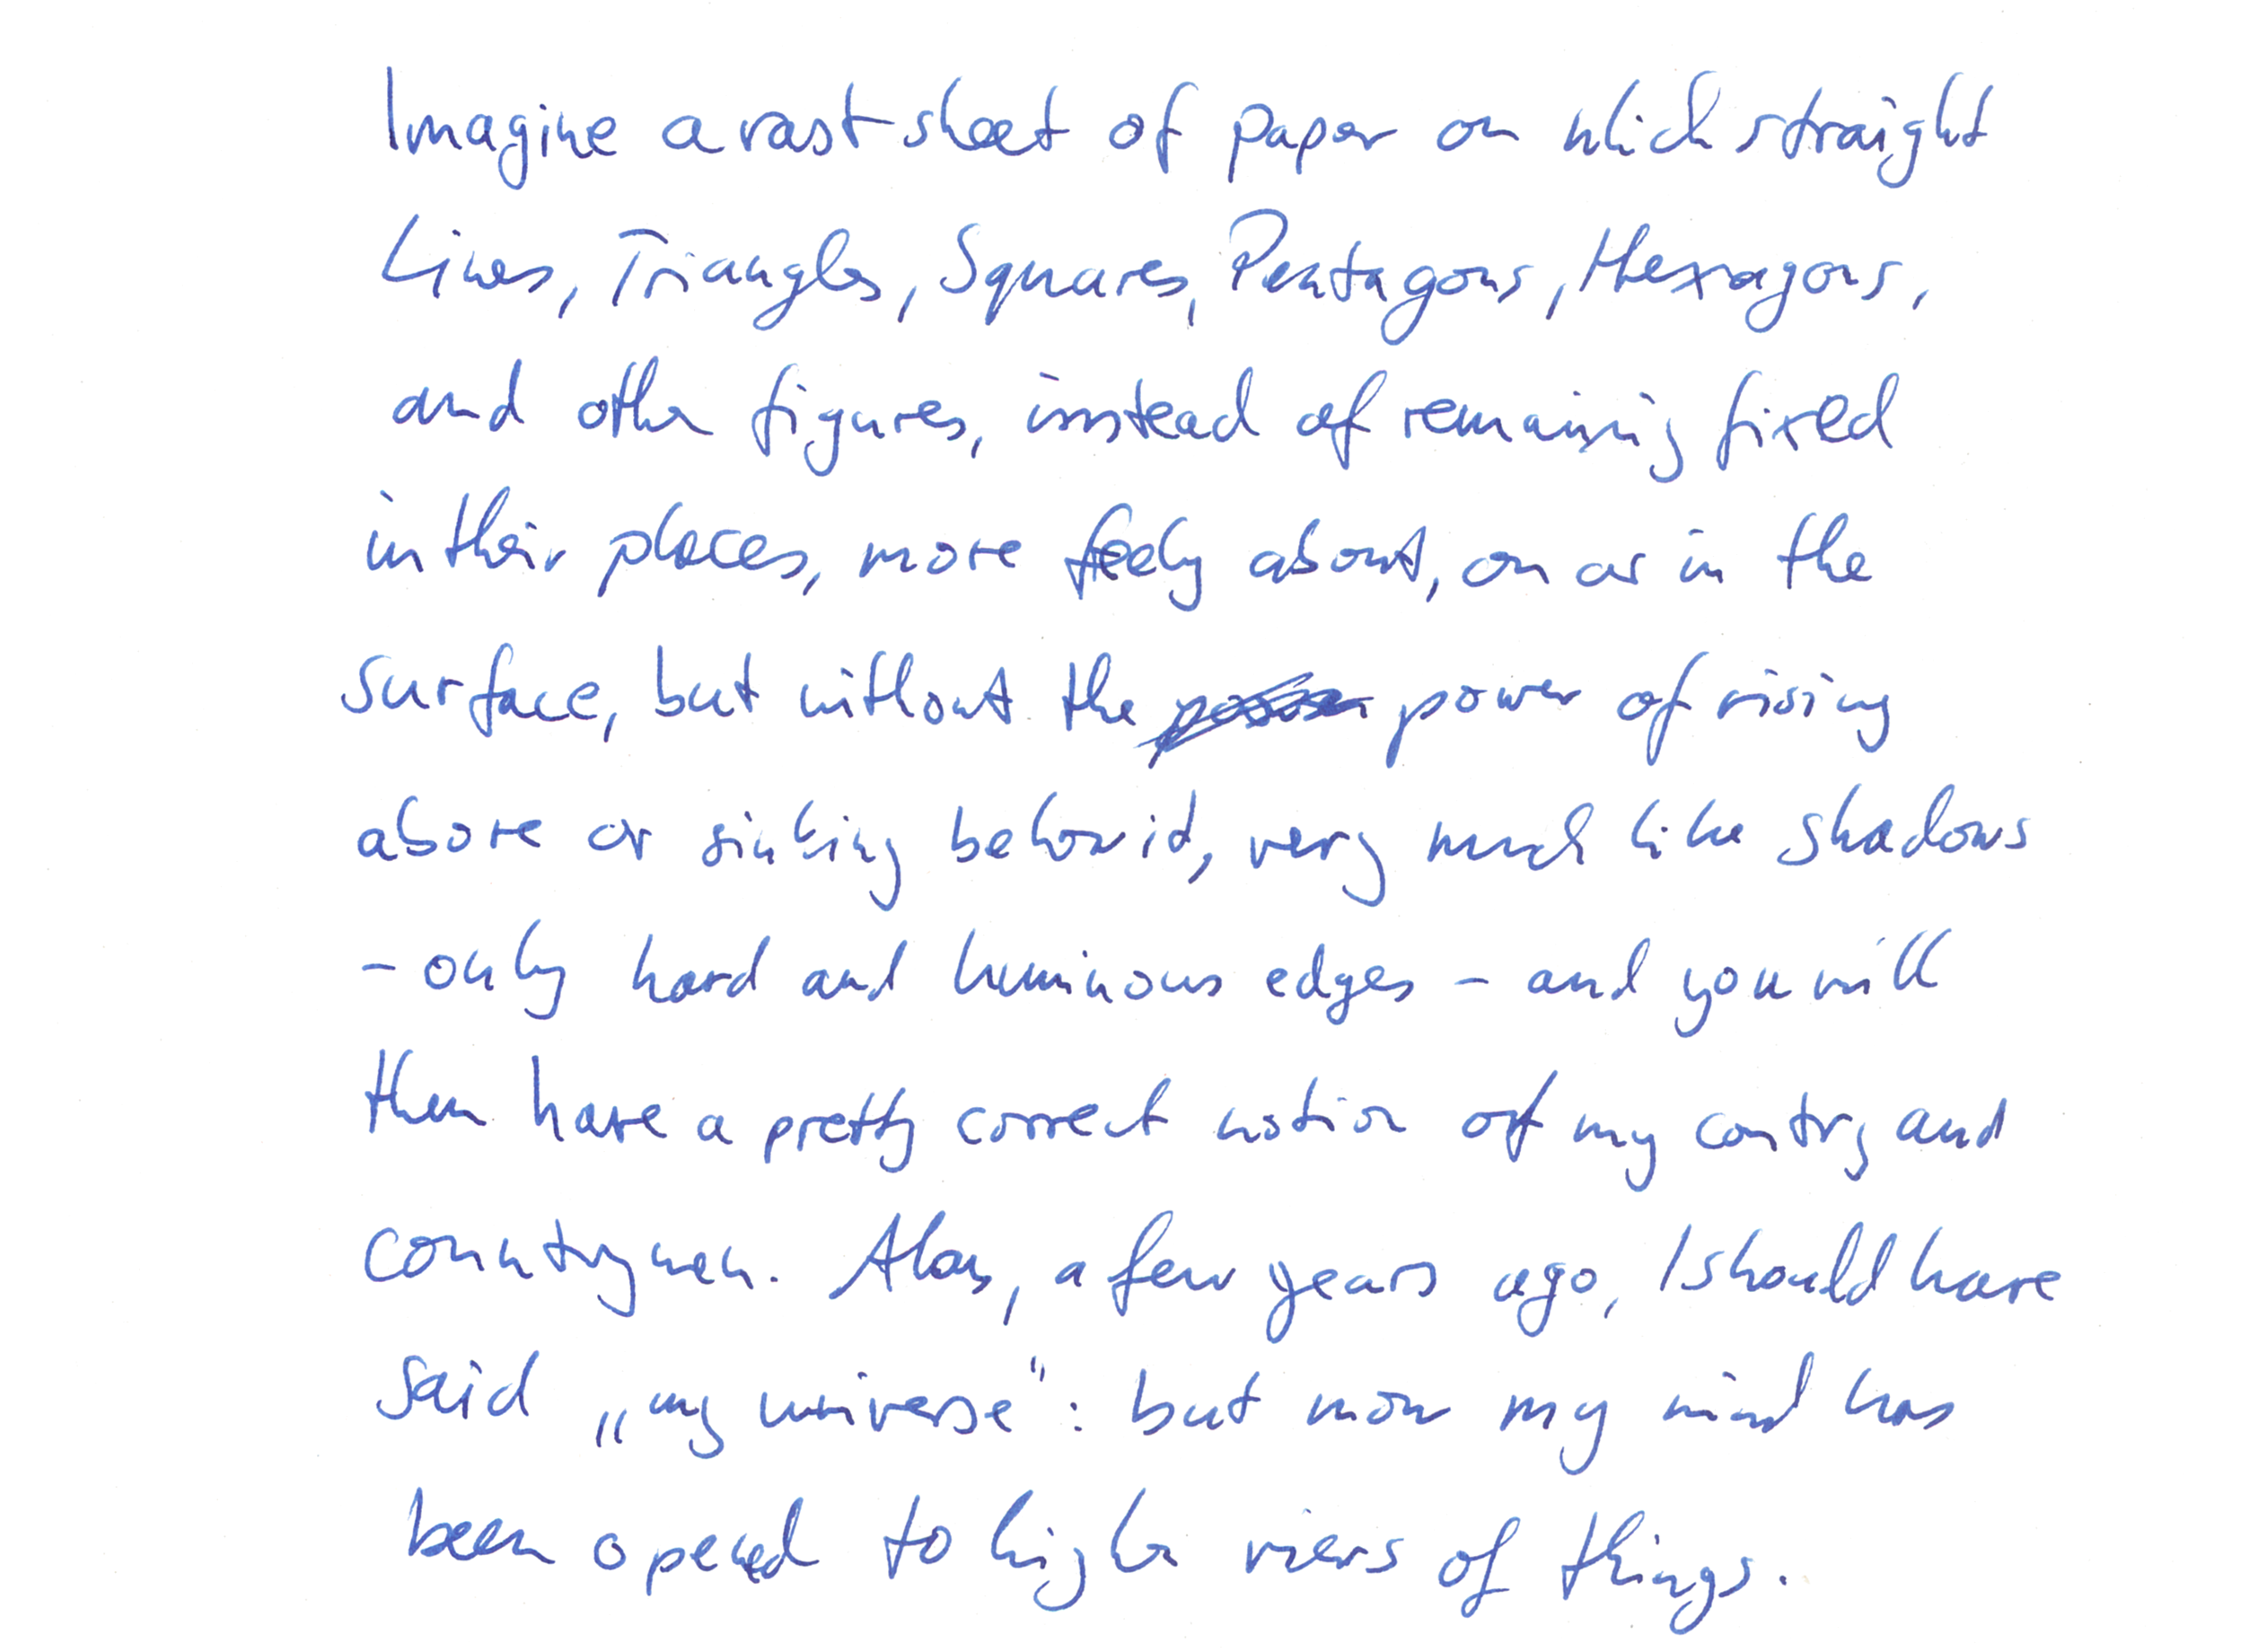 Imagine a vast sheet of paper on which straight
Lines, Triangles, Squares, Pentagons, Hexagons,
and other figures, instead of remaining fixed
in their places, move freely about, on or in the
surface, but without the power of rising
above or sinking below it, very much like shadows
- only hard and luminous edges - and you will
then have a pretty correct notion of my contry and
countrymen. Alas, a few years ago, I should have
said „my universe": but now my mind has
been opened to higher views of things.